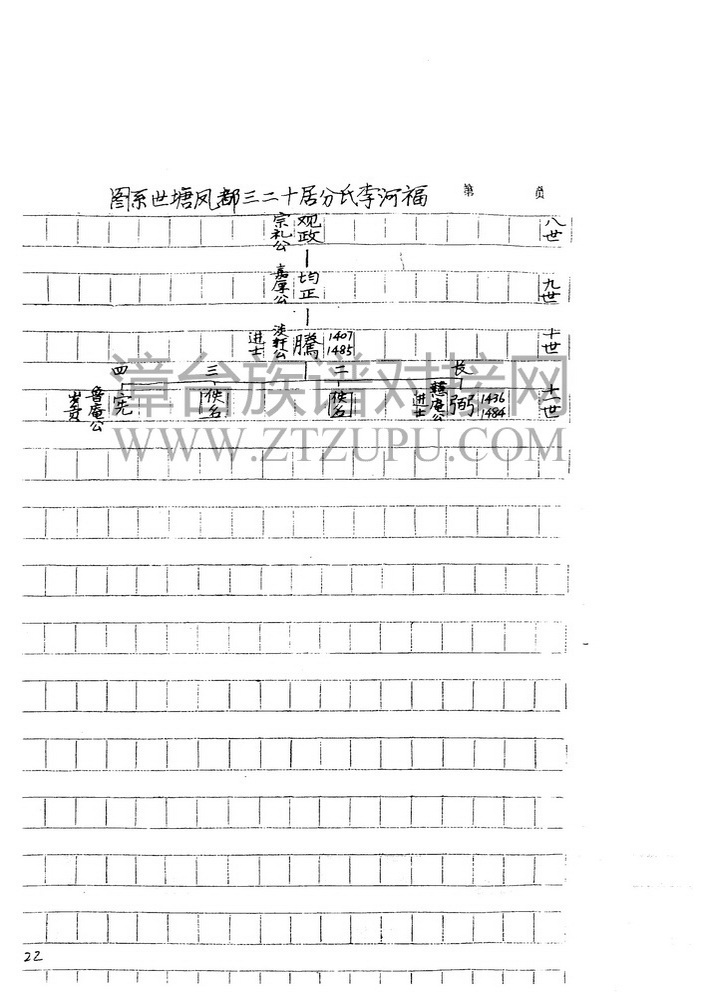 福河李氏分居十二三都凤塘世系图
第 页
八世
观政
宗礼公
九世
均正
嘉厚公
十世
1407
1485
腾
淡轩公
进士
长 二 三 四
十一世
1436
1484
弼
慧庵公
进士
佚名
佚名
宪
鲁庵公
岁贡
漳台族谱对接网
WWW.ZTZUPU.COM
22